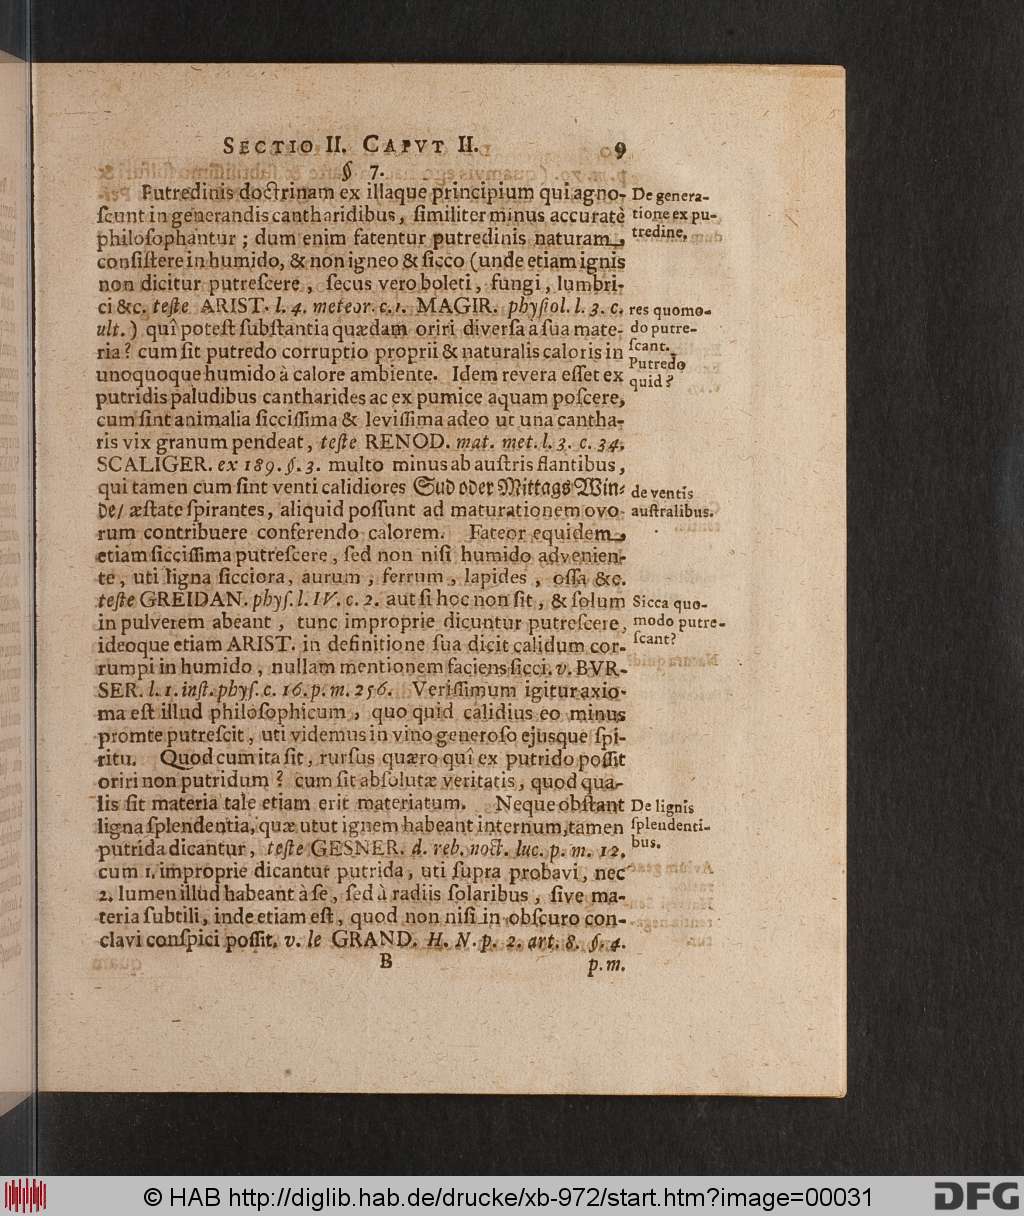 SECTIO II. CAPVT II. 9
§ 7.
Putredinis doctrinam ex illaque principium qui agno-
ſcunt in generandis cantharidibus, ſimiliter minus accuratè
philoſophantur ; dum enim fatentur putredinis naturam,
conſiſtere in humido, & non igneo & ſicco (unde etiam ignis
non dicitur putreſcere, ſecus vero boleti, fungi, lumbri-
ci &c. teſte ARIST. l. 4. meteor. c. 1. MAGIR. phyſiol. l. 3. c.
ult.) quî poteſt ſubſtantia quædam oriri diverſa à ſua mate-
ria? cum ſit putredo corruptio proprii & naturalis caloris in
unoquoque humido à calore ambiente. Idem revera eſſet ex
putridis paludibus cantharides ac ex pumice aquam poſcere,
cum ſint animalia ſicciſſima & leviſſima adeo ut una cantha-
ris vix granum pendeat, teſte RENOD. mat. met. l. 3. c. 34.
SCALIGER. ex 189. §. 3. multo minus ab auſtris flantibus,
qui tamen cum ſint venti calidiores Sud oder Mittags Win-
de/ æſtate ſpirantes, aliquid poſſunt ad maturationem ovo-
rum contribuere conferendo calorem. Fateor equidem,
etiam ſicciſſima putreſcere, ſed non niſi humido advenien-
te, uti ligna ſicciora, aurum, ferrum, lapides, oſſa &c.
teſte GREIDAN. phyſ. l. IV. c. 2. aut ſi hoc non ſit, & ſolum
in pulverem abeant, tunc improprie dicuntur putreſcere,
ideoque etiam ARIST. in definitione ſua dicit calidum cor-
rumpi in humido, nullam mentionem faciens ſicci. v. BVR-
SER. l. 1. inſt. phyſ. c. 16. p. m. 256. Veriſſimum igitur axio-
ma eſt illud philoſophicum, quo quid calidius eo minus
promte putreſcit, uti videmus in vino generoſo ejusque ſpi-
ritu. Quod cum ita ſit, rurſus quæro quî ex putrido poſſit
oriri non putridum? cum ſit abſolutæ veritatis, quod qua-
lis ſit materia tale etiam erit materiatum. Neque obſtant
ligna ſplendentia, quæ utut ignem habeant internum, tamen
putrida dicantur, teſte GESNER. d. reb. noct. luc. p. m. 12.
cum 1. improprie dicantur putrida, uti ſupra probavi, nec
2. lumen illud habeant à ſe, ſed à radiis ſolaribus, ſive ma-
teria ſubtili, inde etiam eſt, quod non niſi in obſcuro con-
clavi conſpici poſſit. v. le GRAND. H. N. p. 2. art. 8. §. 4.
B p. m.
De genera-
tione ex pu-
tredine,
res quomo-
do putre-
ſcant.
Putredo
quid?
de ventis
auſtralibus.
Sicca quo-
modo putre-
ſcant?
De lignis
ſplendenti-
bus.
© HAB http://diglib.hab.de/drucke/xb-972/start.htm?image=00031
DFG